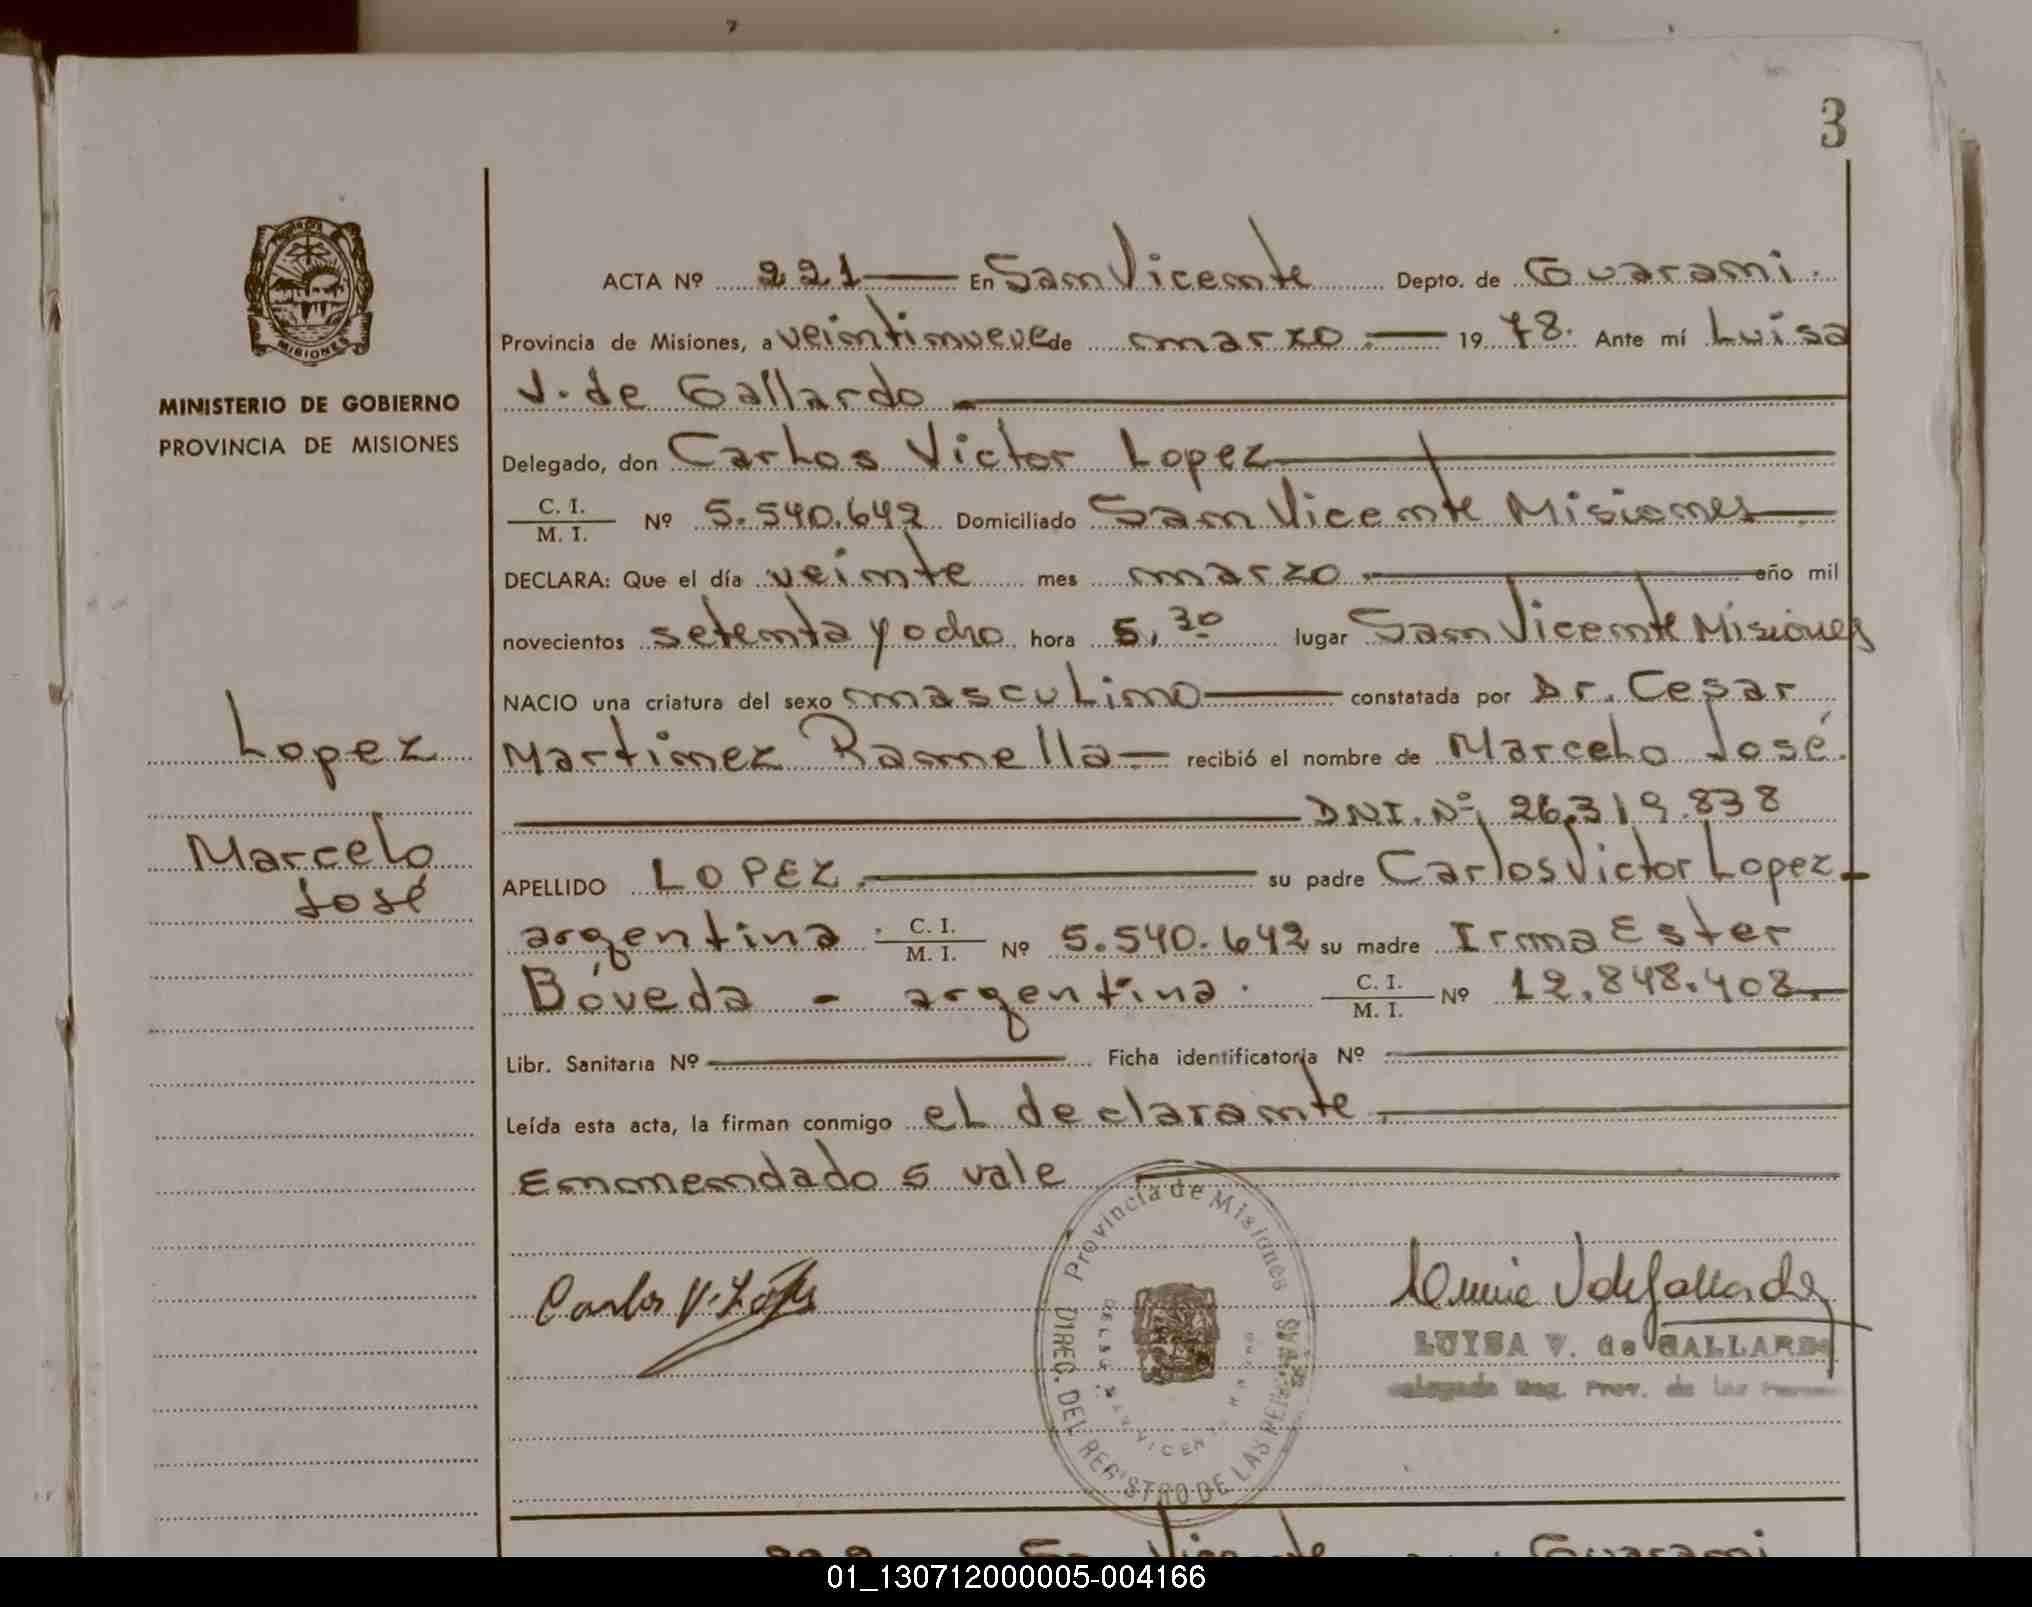 3
MISIONES
MINISTERIO DE GOBIERNO
PROVINCIA DE MISIONES
Lopez
Marcelo
José
ACTA Nº 221 En San Vicente Depto. de Guarani.
Provincia de Misiones, a veintinueve de marzo. 1978. Ante mí Luisa
V. de Gallardo
Delegado, don Carlos Victor Lopez
C. I.
M. I. Nº 5.540.642 Domiciliado San Vicente Misiones
DECLARA: Que el día veinte mes marzo. año mil
novecientos setenta y ocho hora 5,30 lugar San Vicente Misiones
NACIO una criatura del sexo masculino constatada por Dr. Cesar
Martinez Ramella recibió el nombre de Marcelo José.
DNI. Nº 26.319.838
APELLIDO LOPEZ. su padre Carlos Victor Lopez
argentina. C. I.
M. I. Nº 5.540.642 su madre Irma Ester
Bóveda - argentina. C. I.
M. I. Nº 12.848.408.
Libr. Sanitaria Nº Ficha identificatoria Nº
Leída esta acta, la firman conmigo el declarante.
Enmendado 5 vale
Provincia de Misiones
DIREC. DEL REGISTRO DE LAS PERSONAS
Carlos V. López
LUISA V. de GALLARDO
Reg. Prov. de las
San Vicente Guarani
01_130712000005-004166